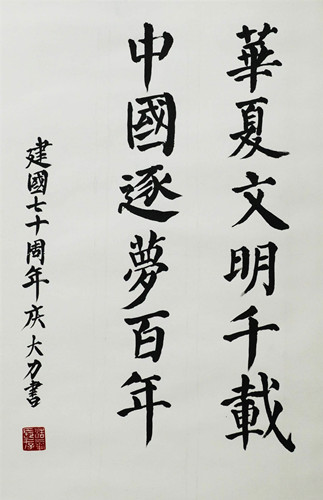 華夏文明千載
中國逐夢百年
建國七十周年庆大力書